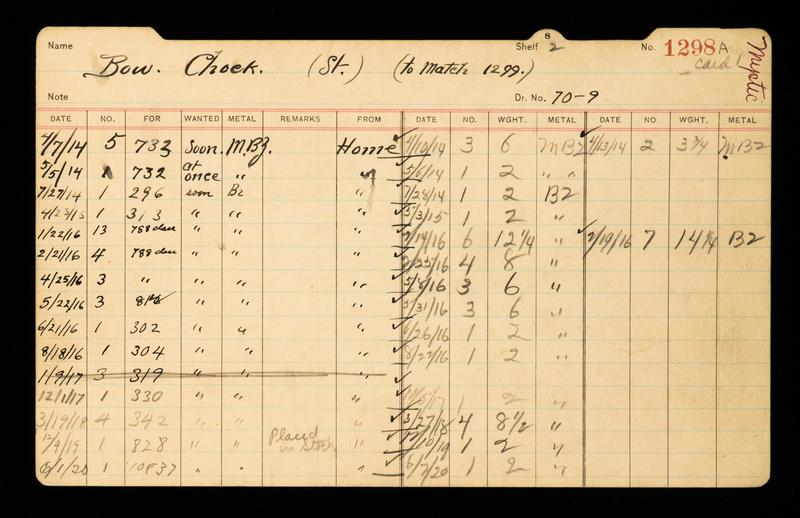 8
Name Shelf 2 No. 1298 A
Mystic
Bow. Chock. (St.) (to Match 1299.) card 1
Note Dr. No. 70-9
DATE NO. FOR WANTED METAL REMARKS FROM DATE NO. WGHT. METAL DATE NO. WGHT. METAL
4/7/14 5 733 Soon. M.Bz. Home 4/10/14 3 6 MBz 4/13/14 2 3 3/4 M.Bz
5/5/14 1 732 at once " " 5/6/14 1 2 " "
7/27/14 1 296 soon Bz " 7/28/14 1 2 Bz
4/23/15 1 313 " " " 5/3/15 1 2 "
1/22/16 13 " " " 2/14/16 6 12 1/4 " 2/19/16 7 14 1/4 Bz
2/21/16 4 " " " 2/25/16 4 8 "
4/25/16 3 " " " " 5/8/16 3 6 "
5/22/16 3 " " " 5/31/16 3 6 "
6/21/16 1 302 " " " 6/26/16 1 2 "
8/18/16 1 304 " " " 8/22/16 1 2 "
1/9/17 3 319 " " "
12/1/17 1 330 " " " 1 2 "
3/19/18 4 342 " " 3/27/18 4 8 1/2 "
12/9/19 1 828 " " Placed in stock " 12/10/19 1 2 "
6/1/20 1 10F37 " " " 6/7/20 1 2 "